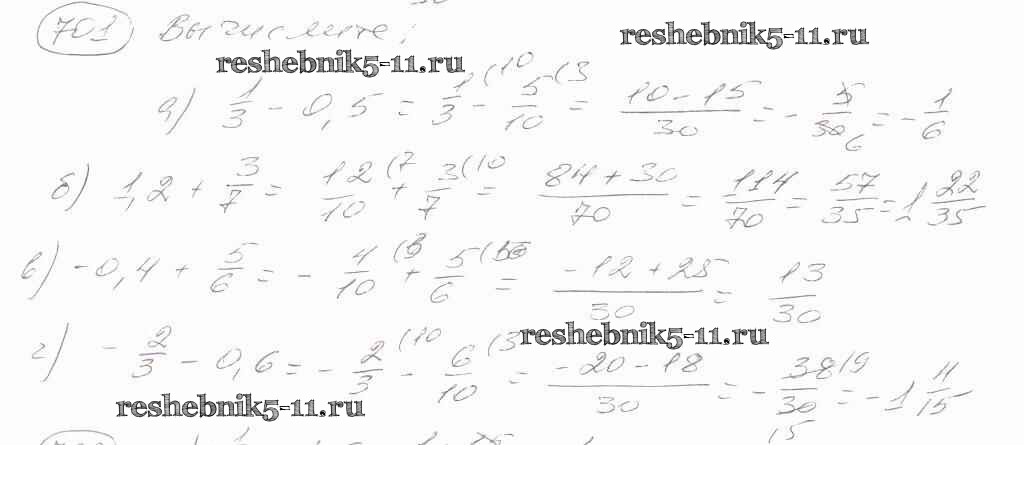 701 Вычислите:
reshebnik5-11.ru
reshebnik5-11.ru
а) 1/3 - 0,5 = 1/3 (10 - 5/10 (3 = (10 - 15)/30 = - 5/30 6 = - 1/6
б) 1,2 + 3/7 = 12/10 (7 + 3/7 (10 = (84 + 30)/70 = 114/70 = 57/35 = 1 22/35
в) -0,4 + 5/6 = - 4/10 (3 + 5/6 (5 = (-12 + 25)/30 = 13/30
reshebnik5-11.ru
г) - 2/3 - 0,6 = - 2/3 (10 - 6/10 (3 = (-20 - 18)/30 = - 38/30 (9 15 = -1 4/15
reshebnik5-11.ru